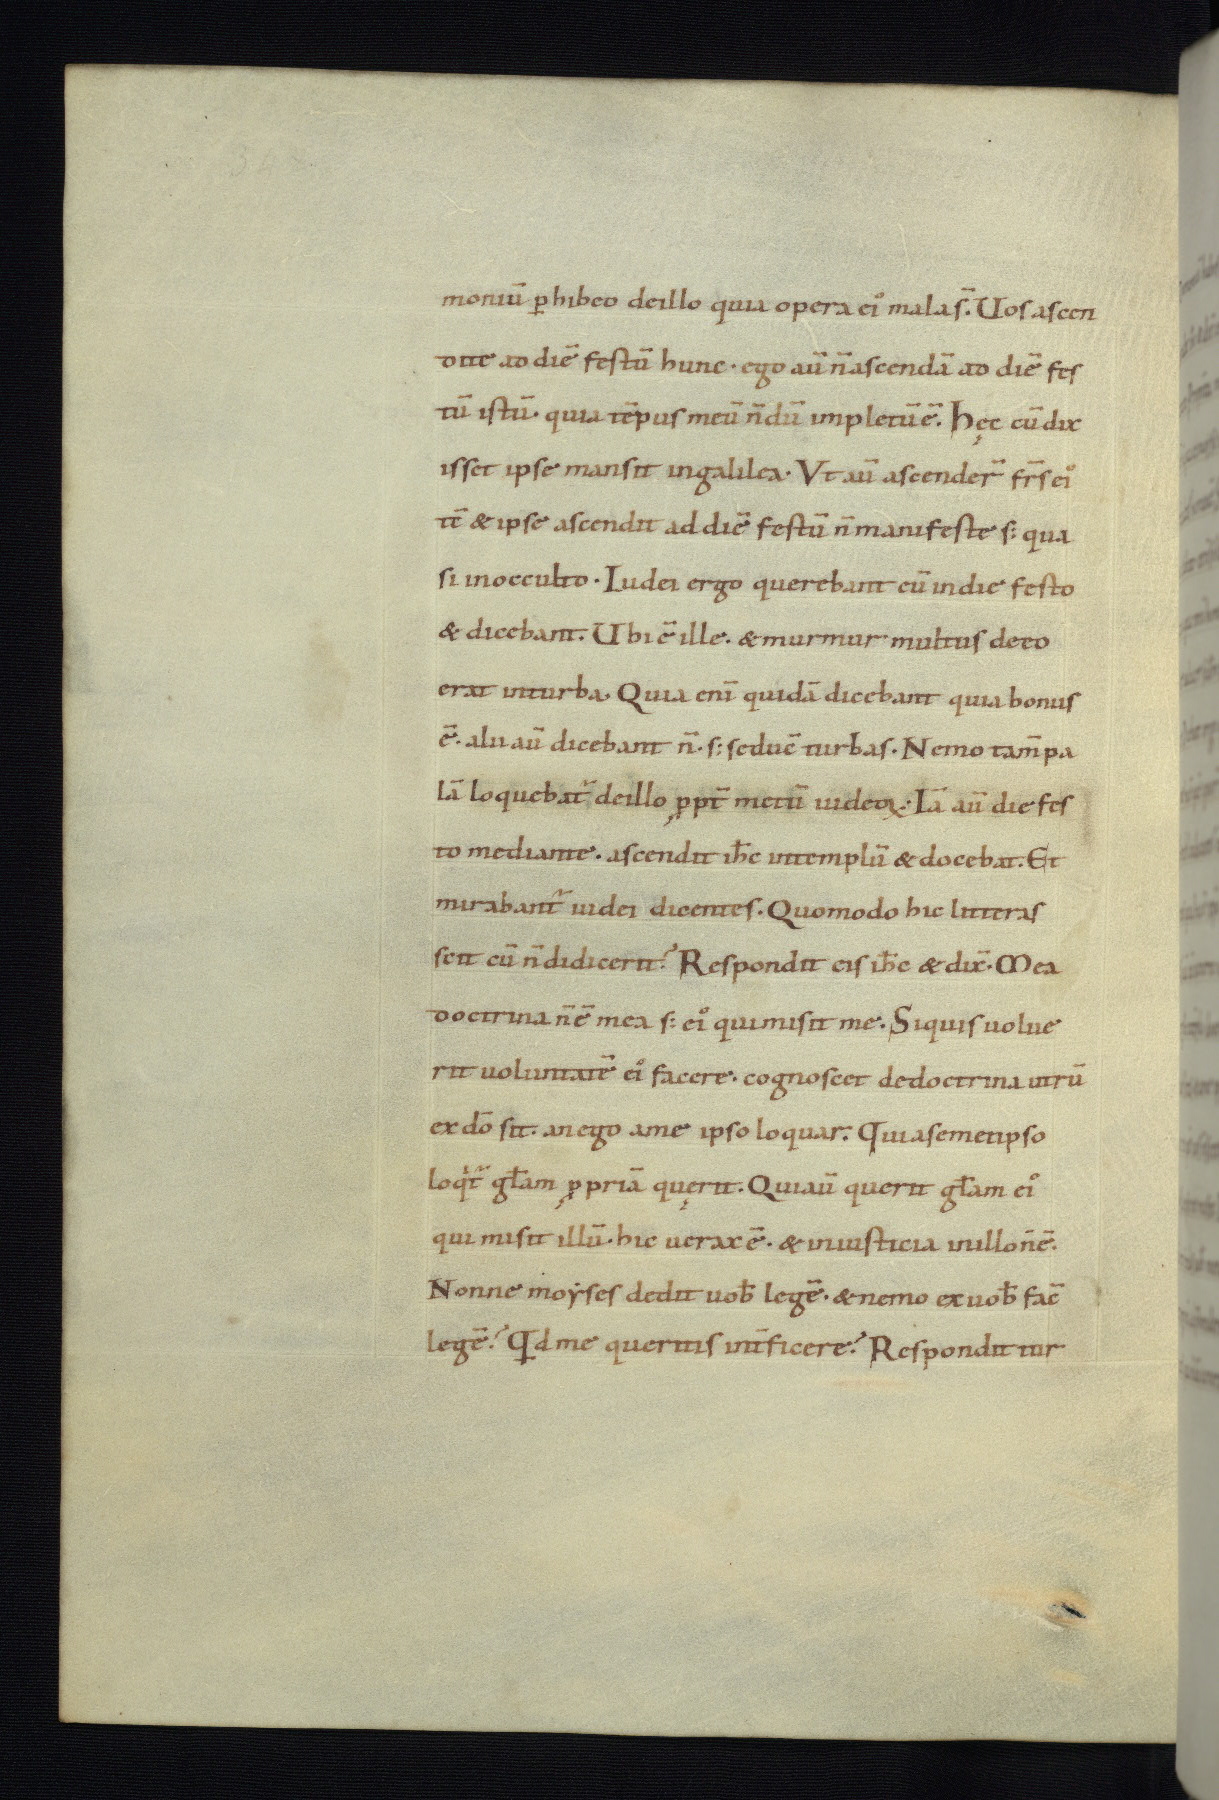 moniū ꝑhibeo deillo quia opera eiꝰ mala s̄. Uos ascen
dite ad diē festū hunc · ego aū n̄ ascendā ad diē fes
tū istū · quia tēpus meū n̄dū impletū ē. Hęc cū dix
isset ipse mansit ingalilea · Vt aū ascender̄ fr̄s eiꝰ
tē & ipse ascendit ad diē festū n̄ manifeste s: qua
si inocculto · Iudei ergo querebant eū indie festo
& dicebant. Ubi ē ille. & murmur multus deeo
erat inturba. Quia eni quidā dicebant quia bonus
ē. alii aū dicebant n̄ · s: seduc̄ turbas. Nemo tam̄ pa
lā loquebat᷑ deillo ꝓpt̄ metū iudeoꝝ. Iā aū die fes
to mediante · ascendit ih̄c intemplū & docebat. Et
mirabant᷑ iudei dicentes. Quomodo hic litteras
scit cū n̄ didicerit? Respondit eis ih̄c & dix̄. Mea
doctrina n̄ ē mea s: eiꝰ qui misit me. Siquis uolue
rit uoluntatē eiꝰ facere. cognoscet dedoctrina utrū
ex dō sit. an ego ame ipso loquar. Qui asemetipso
loqit᷑ gl̄am ꝓpriā quęrit. Qui aū querit gl̄am eiꝰ
qui misit illū · hic uerax ē · & iniusticia inillo n̄ ē.
Nonne moẏses dedit uob̄ legē · & nemo ex uob̄ fac̄
legē? Qd me queritis int̄ficere? Respondit tur